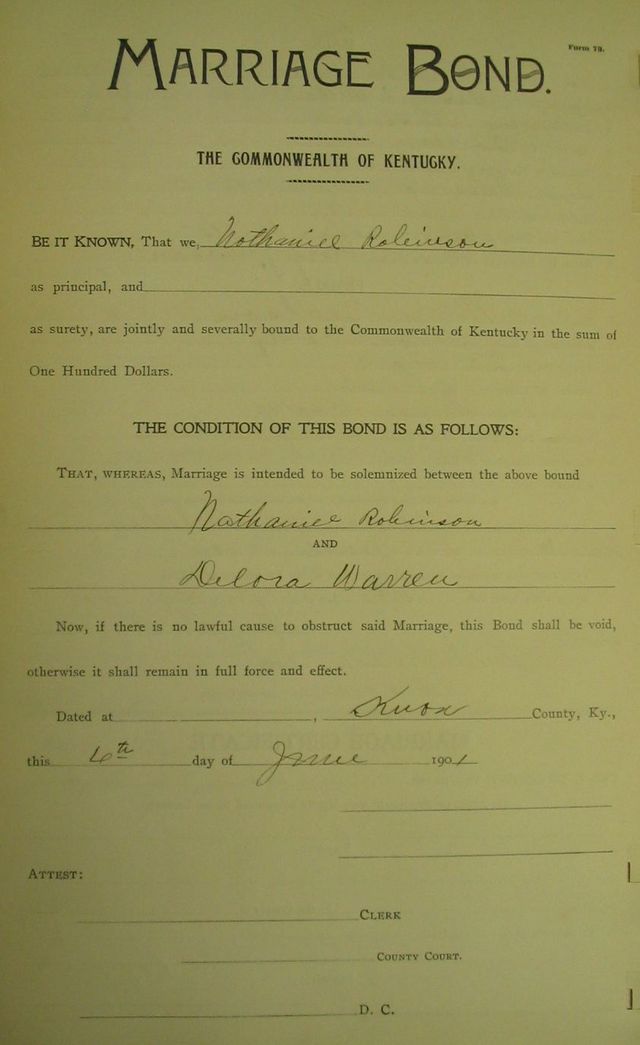 Form 79.
MARRIAGE BOND.
THE COMMONWEALTH OF KENTUCKY.
BE IT KNOWN, That we, Nathaniel Robinson
as principal, and
as surety, are jointly and severally bound to the Commonwealth of Kentucky in the sum of
One Hundred Dollars.
THE CONDITION OF THIS BOND IS AS FOLLOWS:
THAT, WHEREAS, Marriage is intended to be solemnized between the above bound
Nathaniel Robinson
AND
Delora Warren
Now, if there is no lawful cause to obstruct said Marriage, this Bond shall be void,
otherwise it shall remain in full force and effect.
Dated at , Knox County, Ky.,
this 6th day of June 1901
ATTEST:
CLERK
COUNTY COURT.
D. C.